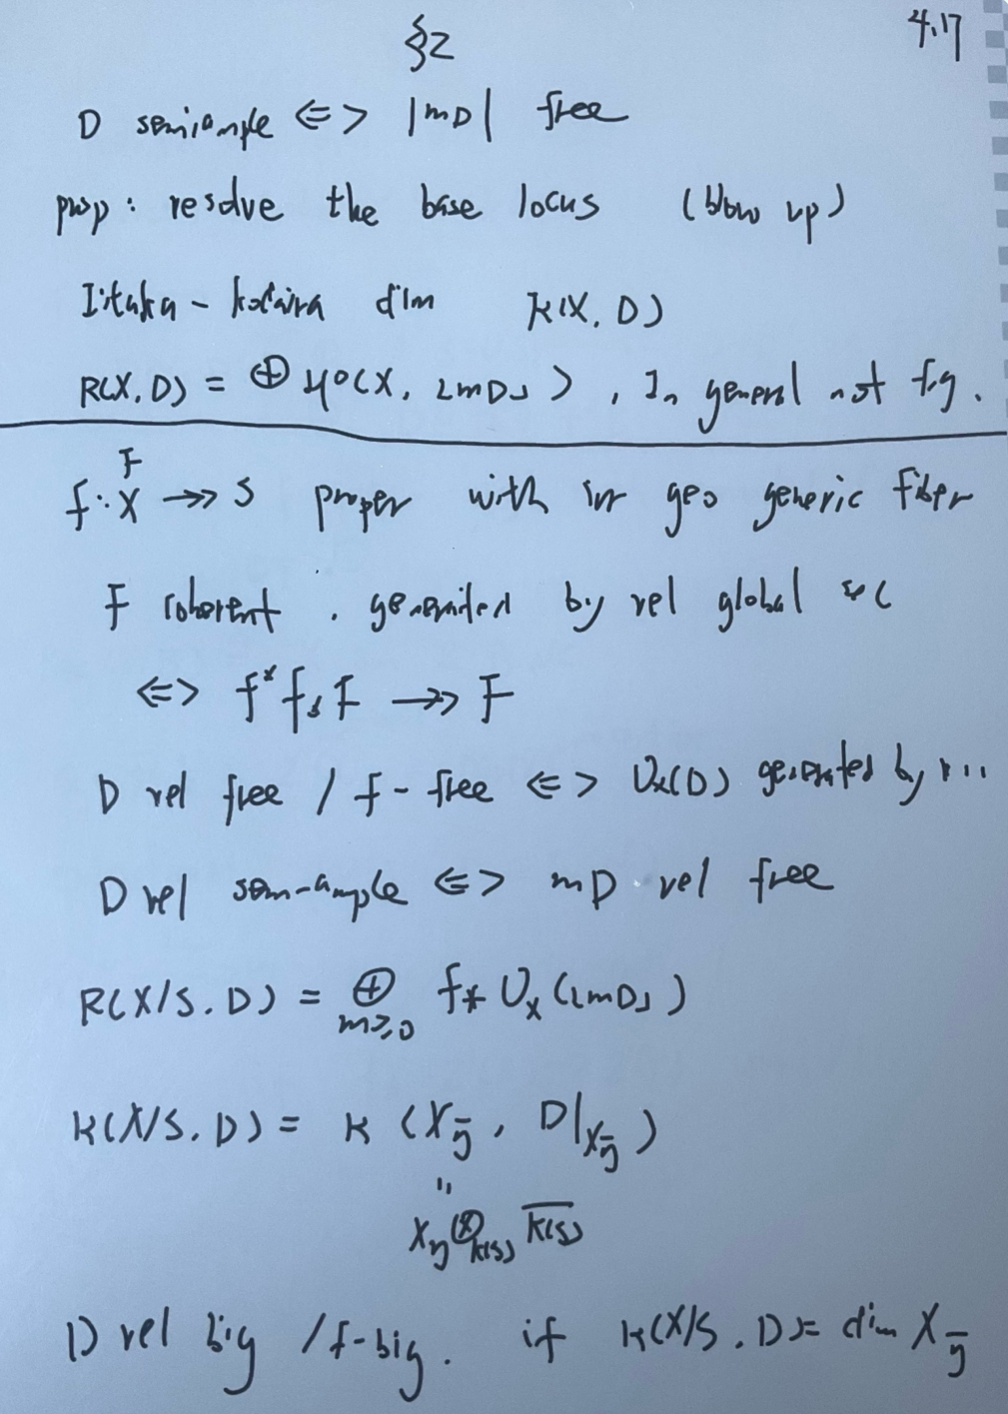 §2 4.17
D semiample <=> |mD| free
prop: resolve the base locus (blow up)
Iitaka - kodaira dim κ(X, D)
R(X, D) = ⊕ H⁰(X, ⌊mD⌋), In general not f.g.
F
f: X ↠ S proper with irr geo generic fiber
F coherent. generated by rel global sec
<=> f* f_* F ↠ F
D rel free / f-free <=> O_X(D) generated by r...
D rel semi-ample <=> mD rel free
R(X/S. D) = ⊕_{m≥0} f_* O_X(⌊mD⌋)
κ(X/S. D) = κ(X_η̄, D|_{X_η̄})
"
X_η ⊗_{k(S)} \overline{k(S)}
D rel big / f-big. if κ(X/S. D) = dim X_η̄